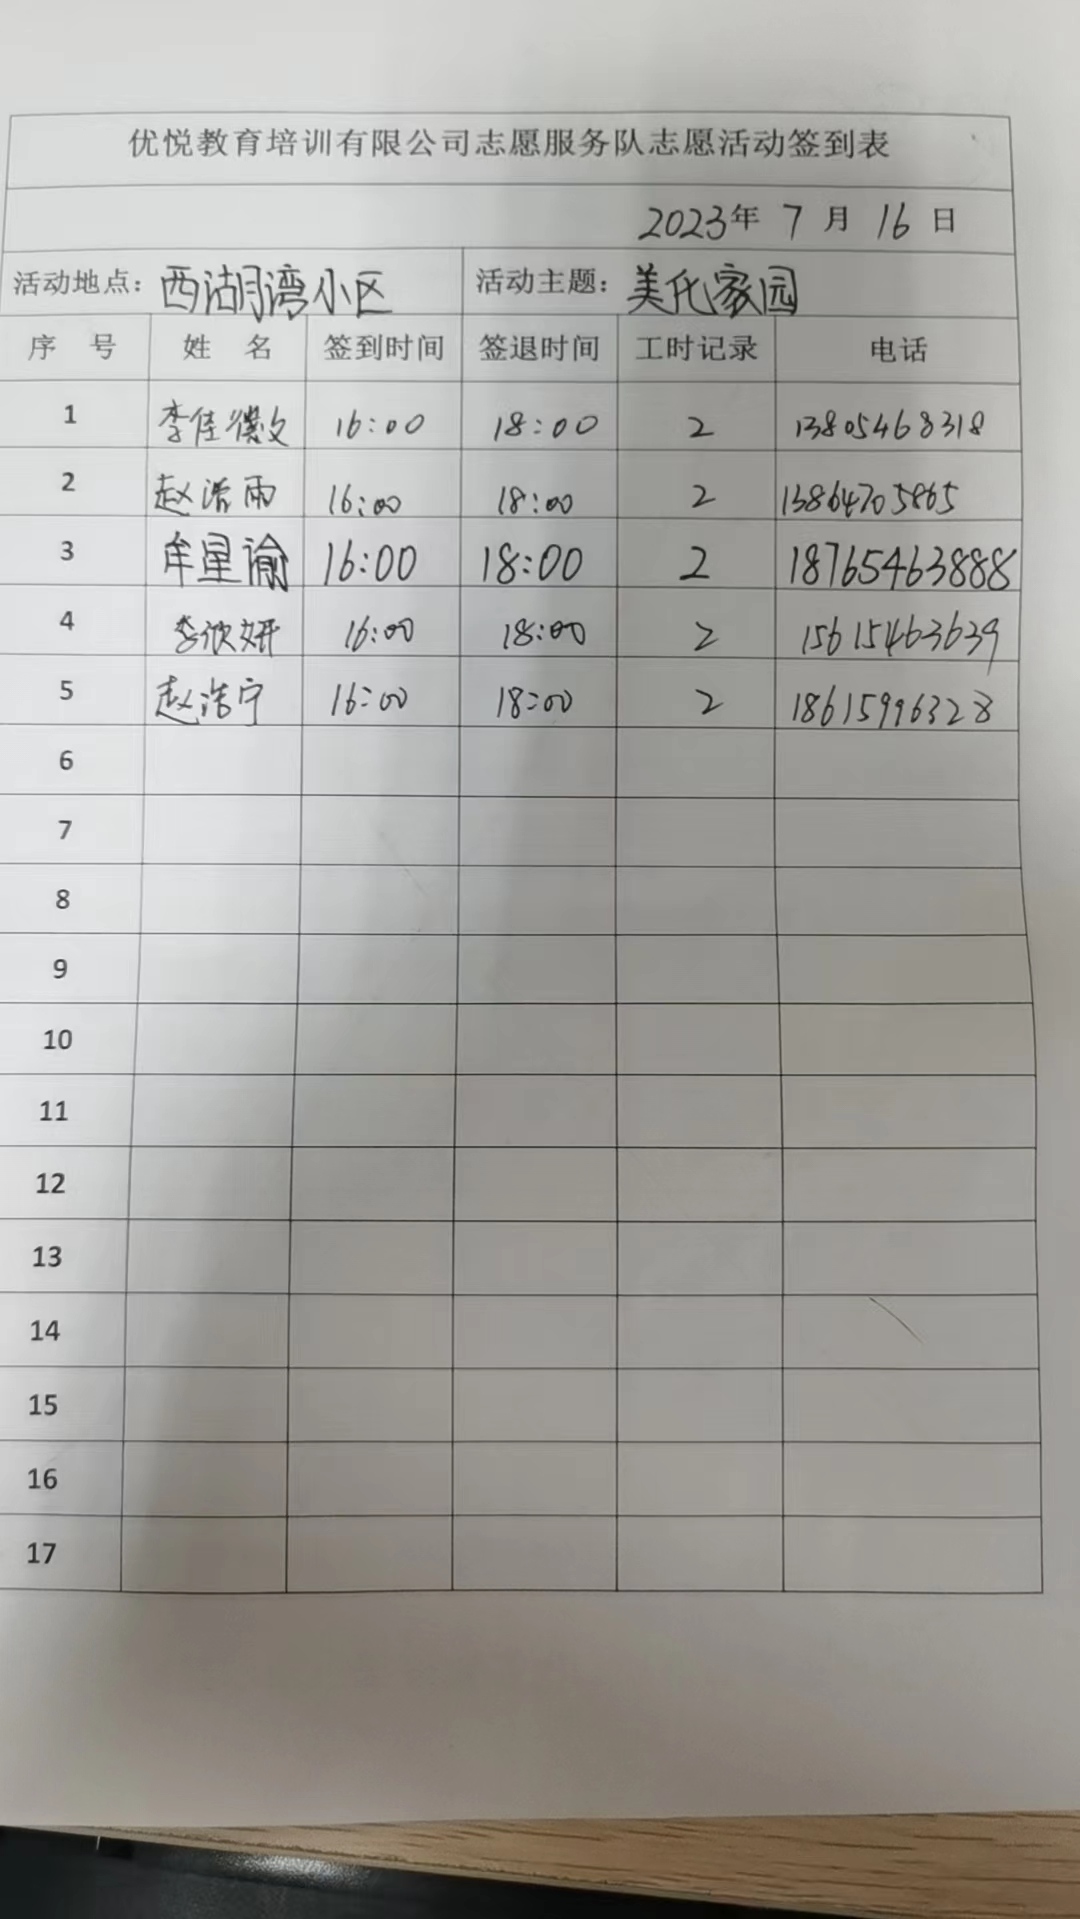 优悦教育培训有限公司志愿服务队志愿活动签到表
2023年 7 月 16 日
活动地点：西湖月湾小区 活动主题：美化家园
序 号 姓 名 签到时间 签退时间 工时记录 电话
1 李佳徽 16:00 18:00 2 13805468318
2 赵浩雨 16:00 18:00 2 13864705865
3 牟星谕 16:00 18:00 2 18765463888
4 李欣妍 16:00 18:00 2 15615463639
5 赵浩宁 16:00 18:00 2 18615996328
6
7
8
9
10
11
12
13
14
15
16
17